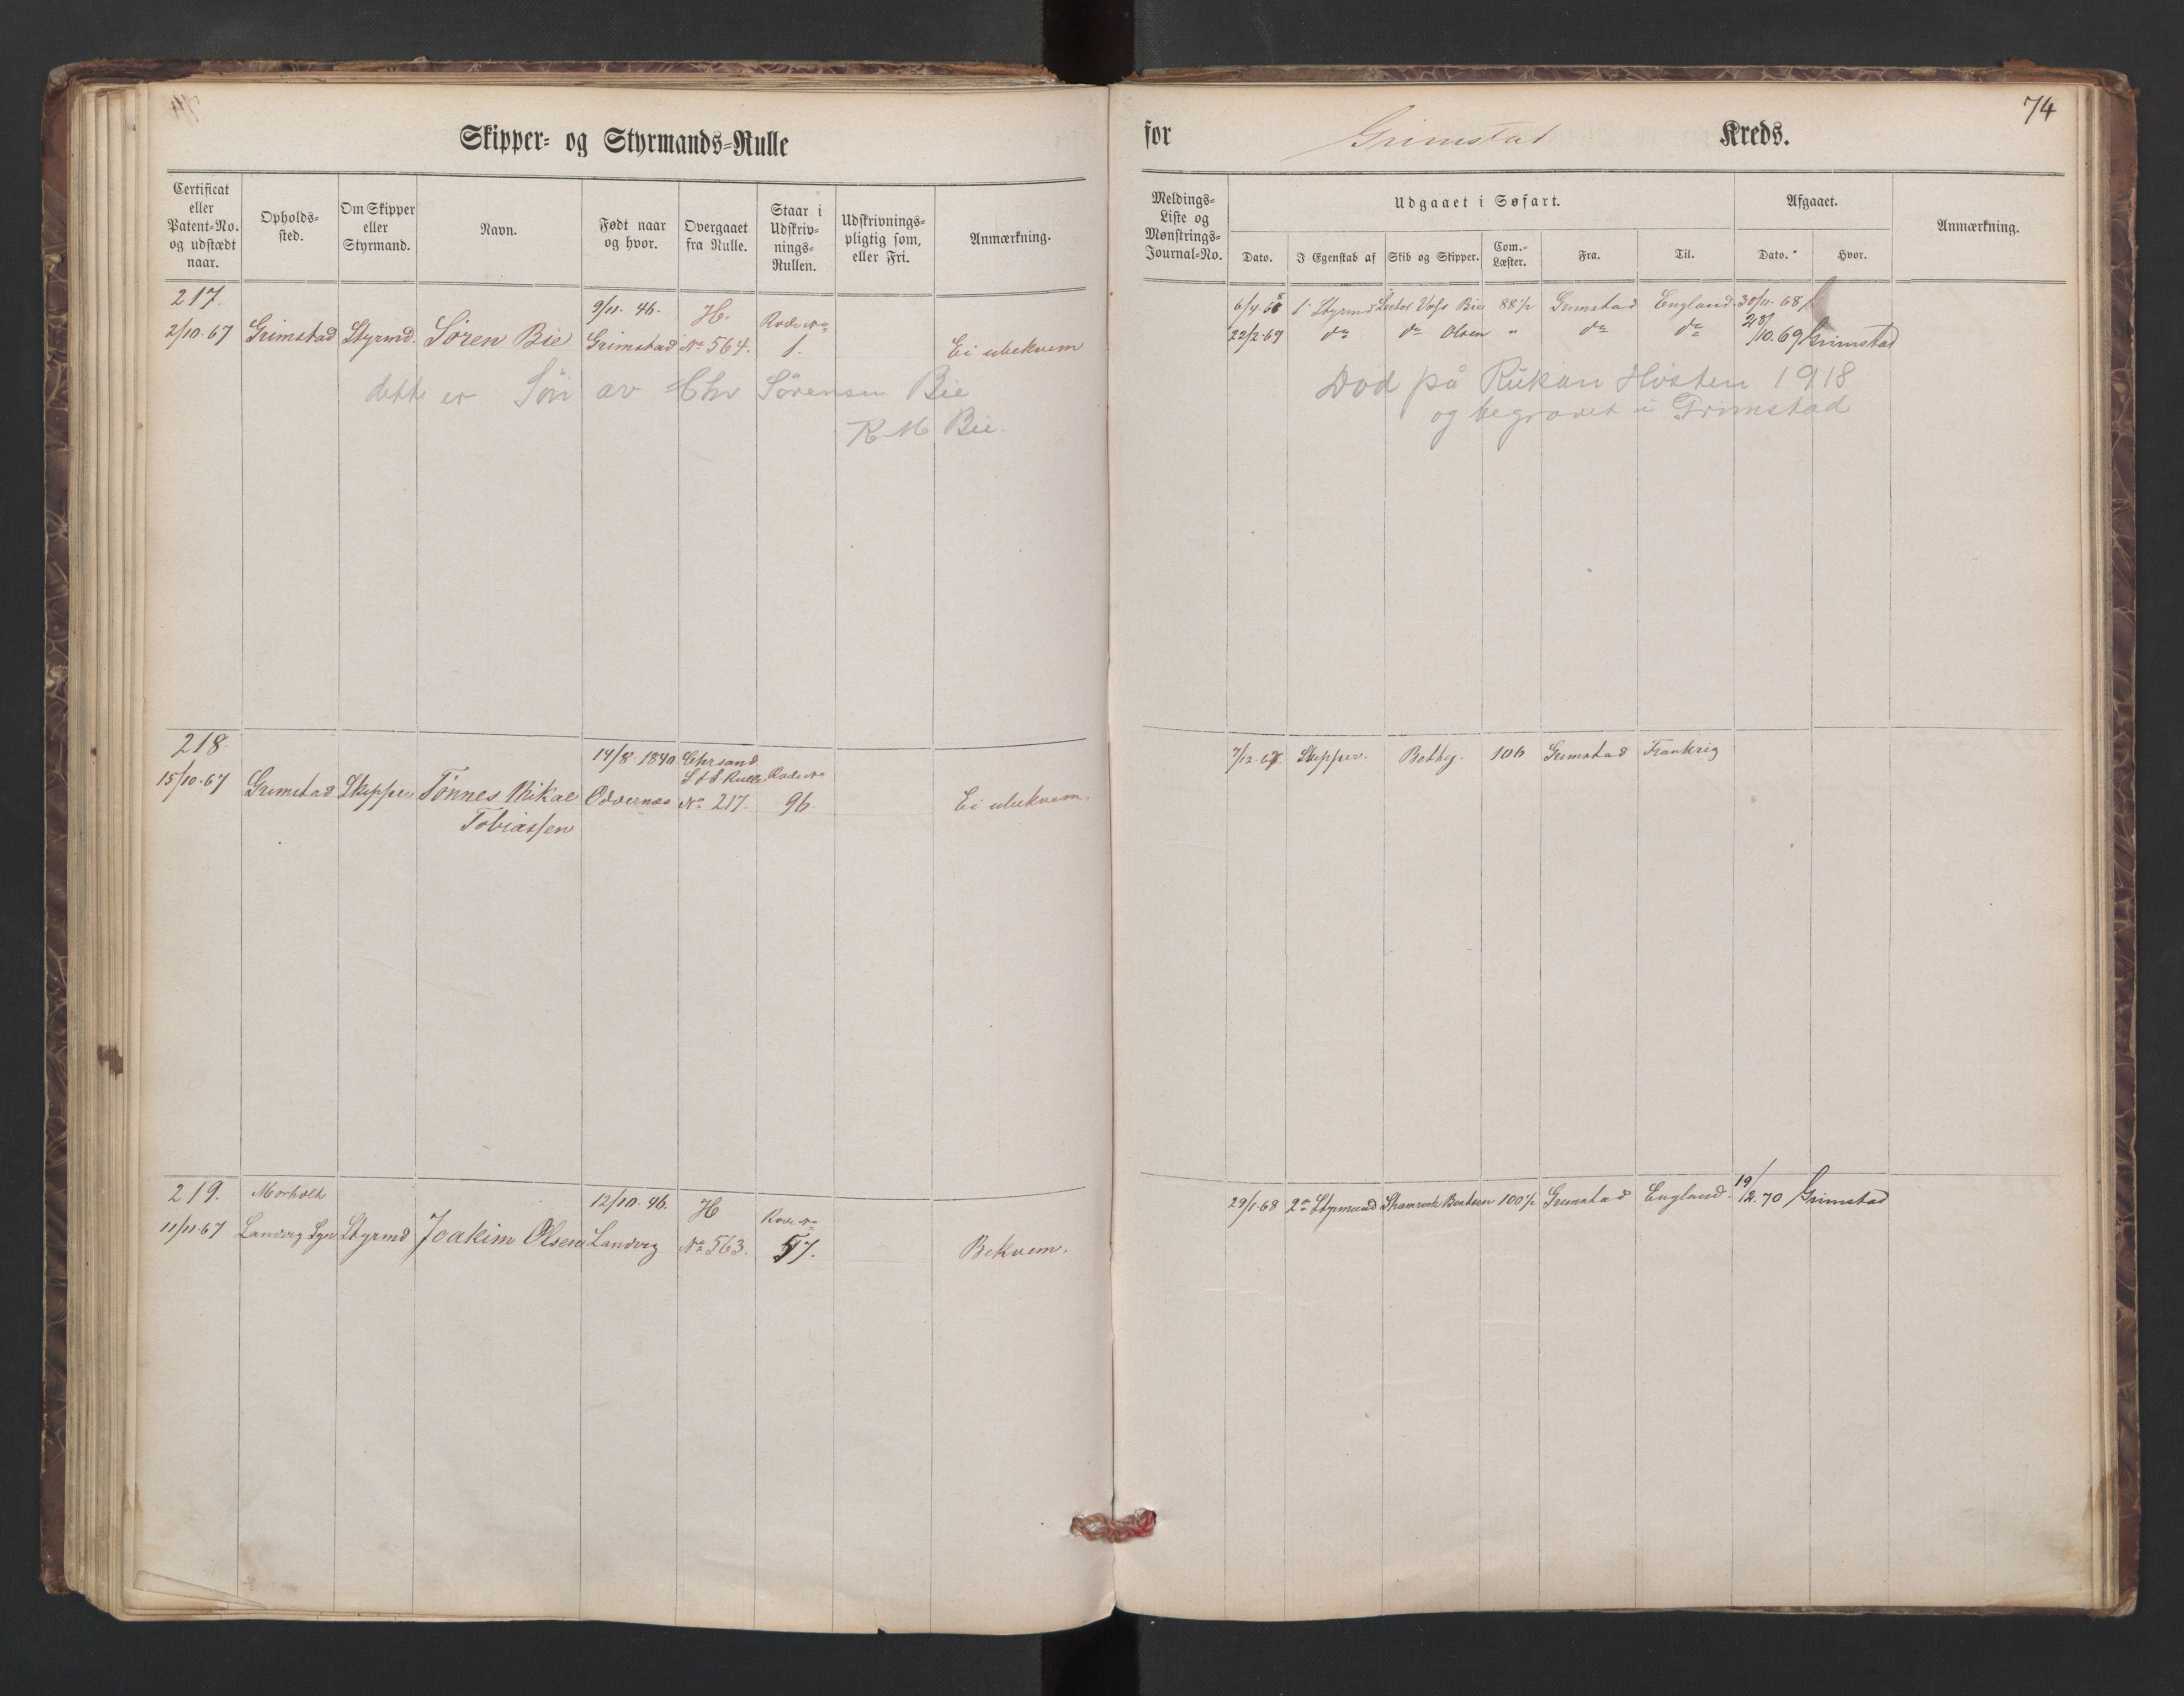 74
Skipper- og Styrmands-Rulle for Grimstad Kreds.
Certificat eller Patent-No. og udstædt naar.
Opholds-sted.
Om Skipper eller Styrmand.
Navn.
Født naar og hvor.
Overgaaet fra Rulle.
Staar i Udskriv-nings-Rullen.
Udskrivnings-pligtig som, eller Fri.
Anmærkning.
Meldings-Liste og Mønstrings-Journal-No.
Udgaaet i Søfart.
Dato.
I Egenskab af
Skib og Skipper.
Com.-Læster.
Fra.
Til.
Afgaaet.
Dato.
Hvor.
Anmærkning.
217. 9/11. 46. H. Rode No 6/4.68 1. Styrmd Bie 88 1/2 Grimstad England 30/11-68
2/10-67 Grimstad Styrmd. Sören Bie Grimstad No 564. 1. Ei ubekvem 22/2-69 do do Olsen " do do 28/10.69 Grimstad
dette er Sön av Chr Sörensen Bie Död på Rukan Hösten 1918
K.M Bie. og begravet i Grimstad
218. 14/8 1840 Chrsand 7/12-67 Skipper. Bethy. 106 Grimstad Frankrig
S & S Rulle Rode No
15/10-67 Grimstad Skipper Tönnes Mikal Odderness No 217. 96. Ei ubekvem.
Tobiassen
219. Morholt 12/10-46. H Rode No 29/1-68 2n Styrmand Shamrock Berntsen 100 1/2 Grimstad England 19/2.70 Grimstad
11/11-67 Landvig Sgn Styrmd Joakim Olsen Landvig No 563. 57. Bekvem.